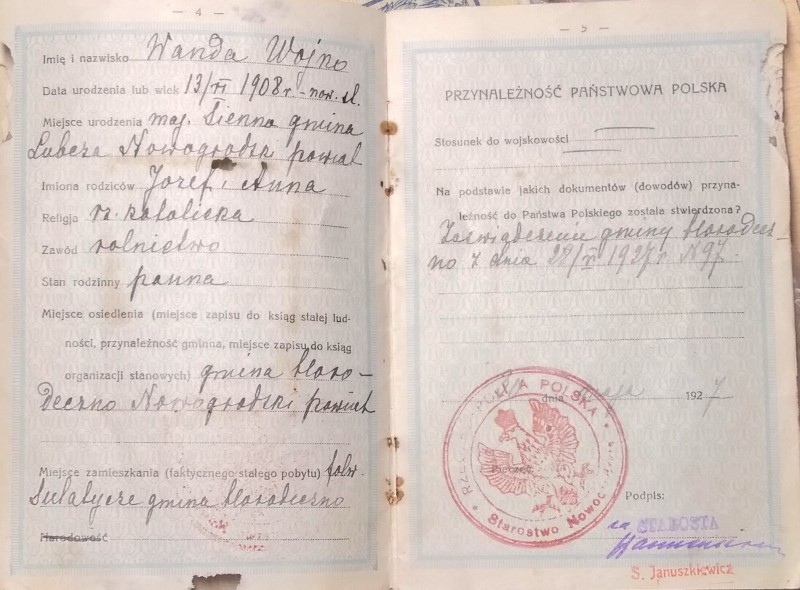 — 4 —
Imię i nazwisko Wanda Wojno
Data urodzenia lub wiek 13/VI 1908 r. - now. st.
Miejsce urodzenia maj. Sienno gmina
Lubcza Nowogrodzki powiat
Imiona rodziców Jozef i Anna
Religja rz. katolicka
Zawód rolnictwo
Stan rodzinny panna
Miejsce osiedlenia (miejsce zapisu do ksiąg stałej lud-
ności, przynależność gminna, miejsce zapisu do ksiąg
organizacji stanowych) gmina Horo-
deczno Nowogrodzki powiat
Miejsce zamieszkania (faktycznego stałego pobytu) folw.
gmina Horodeczno
Narodowość
— 5 —
PRZYNALEŻNOŚĆ PAŃSTWOWA POLSKA
Stosunek do wojskowości
Na podstawie jakich dokumentów (dowodów) przyna-
leżność do Państwa Polskiego została stwierdzona?
Zaświadczenie gminy Horodecz-
no z dnia 28/VI 1927 r. N 97.
dnia 1927
POLSKA
Pieczęć
Starostwo
Podpis:
za STAROSTA
S. Januszkiewicz